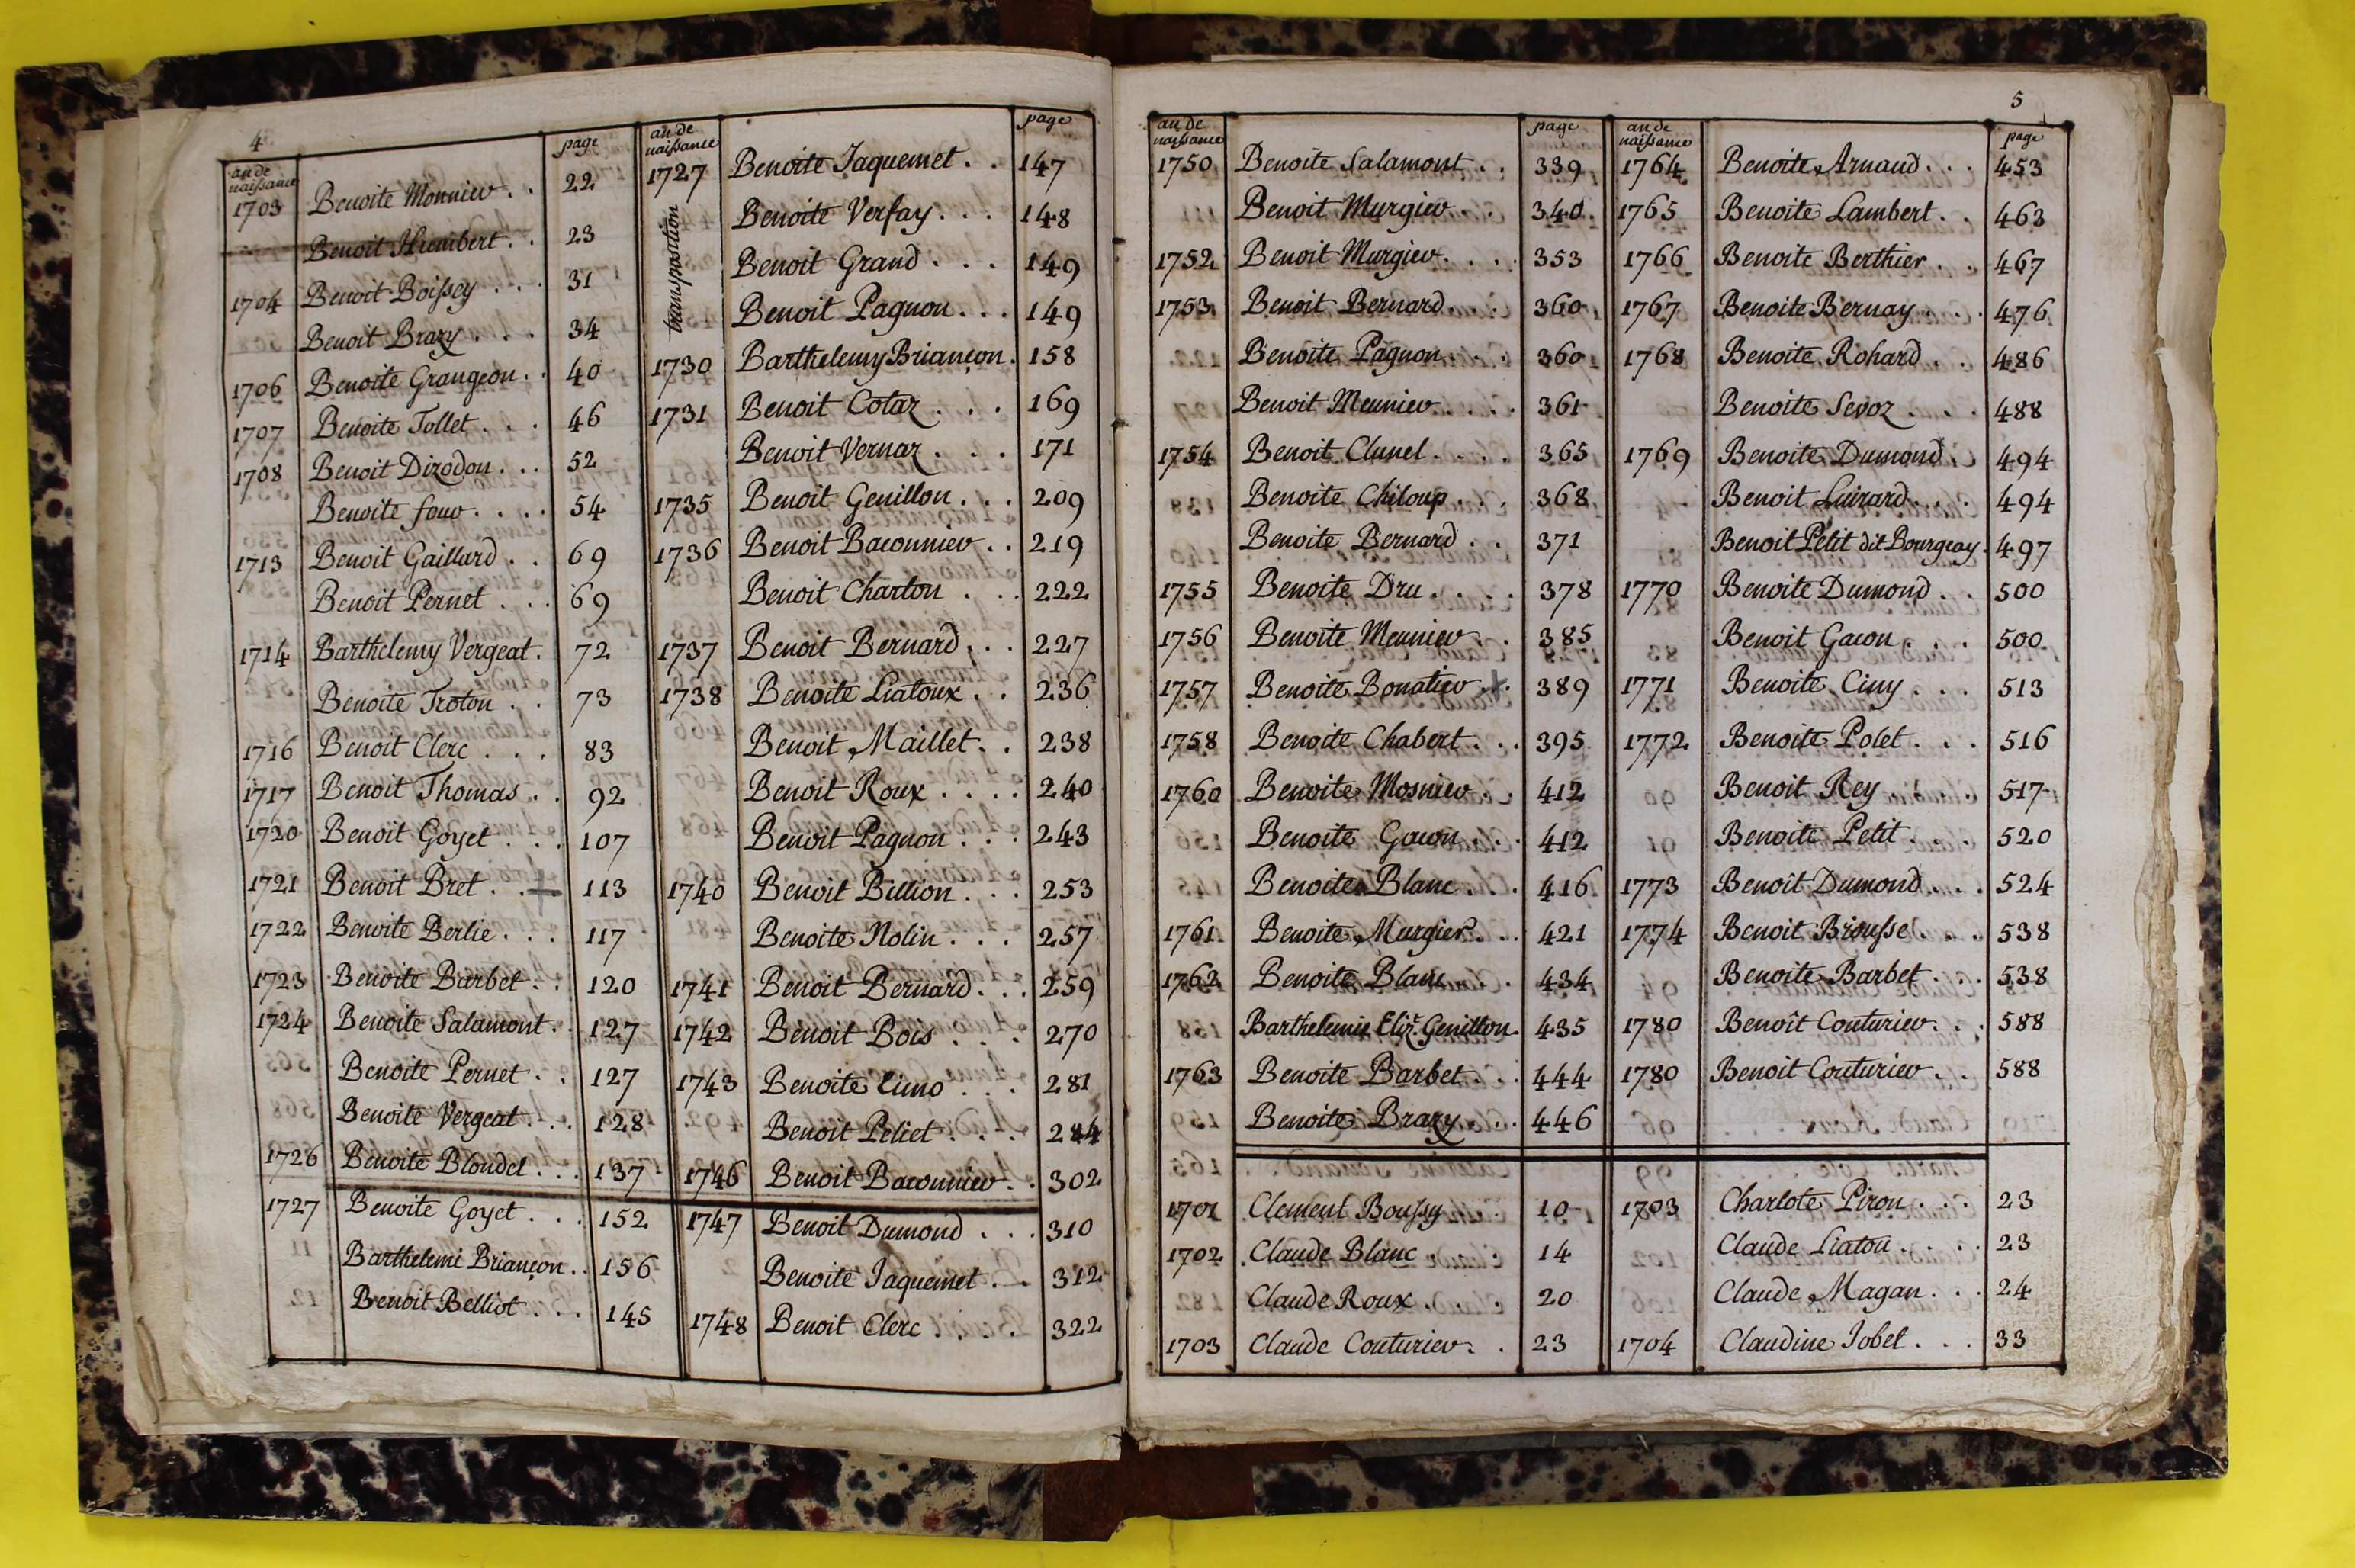 4
an de naissance page
1703 Benoite Monnier . . 22
Benoit Humbert . . 23
1704 Benoit Boissey . . . 31
Benoit Brazy . . . 34
1706 Benoite Grangeon . . 40
1707 Benoite Tollet . . . 46
1708 Benoit Dizodon . . . 52
Benoite four . . . . 54
1713 Benoit Gaillard . . 69
Benoit Pernet . . . 69
1714 Barthelemy Vergeat . 72
Benoite Troton . . 73
1716 Benoit Clerc . . . 83
1717 Benoit Thomas . . 92
1720 Benoit Goyet . . . 107
1721 Benoit Bret . . 113
1722 Benoite Berlie . . . 117
1723 Benoite Barbet . . 120
1724 Benoite Salamont . . 127
Benoite Pernet . . 127
Benoite Vergeat . . . 128
1726 Benoite Blondel . . . 137
1727 Benoite Goyet . . . 152
Barthelemi Briançon . . 156
Benoit Belliot . . . 145
an de naissance page
1727 Benoite Jaquemet . . 147
transposition
Benoite Verfay . . . 148
Benoit Grand . . . 149
Benoit Pagnon . . . 149
1730 Barthelemy Briançon . 158
1731 Benoit Cotaz . . . 169
Benoit Vernaz . . . 171
1735 Benoit Genillon . . . 209
1736 Benoit Baconnier . . 219
Benoit Charton . . . 222
1737 Benoit Bernard . . . 227
1738 Benoite Liatoux . . 236
Benoit Maillet . . 238
Benoit Roux . . . . 240
Benoit Pagnon . . . 243
1740 Benoit Billion . . . 253
Benoite Nolin . . . 257
1741 Benoit Bernard . . . 259
1742 Benoit Bois . . . 270
1743 Benoite Limo . . . 281
Benoit Peliet . . . 284
1746 Benoit Baconnier . . 302
1747 Benoit Dumond . . . 310
Benoite Jaquemet . . 312
1748 Benoit Clerc . . . . 322
5
an de naissance page
1750 Benoite Salamont . . 339
Benoit Murgier . . 340
1752 Benoit Murgier . . . . 353
1753 Benoit Bernard . . . 360
Benoite Pagnon . . . 360
Benoit Meunier . . . . 361
1754 Benoit Clunel . . . . 365
Benoite Chiloup . . . 368
Benoite Bernard . . 371
1755 Benoite Dru . . . . 378
1756 Benoite Meunier . . 385
1757 Benoite Bonatier . x . 389
1758 Benoite Chabert . . . 395
1760 Benoite Mosnier . . 412
Benoite Gacon . . . 412
Benoite Blanc . . . 416
1761 Benoite Murgier . . . 421
1762 Benoite Blanc . . . 434
Barthelemie Eliz. Genillon . 435
1763 Benoite Barbet . . . 444
Benoite Brazy . . 446
1701 Clement Boussy . . 10
1702 Claude Blanc . . . 14
Claude Roux . . . 20
1703 Claude Couturier . . 23
an de naissance page
1764 Benoite Arnaud . . . 453
1765 Benoite Lambert . . 463
1766 Benoite Berthier . . 467
1767 Benoite Bernay . . . 476
1768 Benoite Rohard . . . 486
Benoite Sevoz . . . 488
1769 Benoite Dumond . . 494
Benoit Luirard . . . 494
Benoit Petit dit Bourgeay . 497
1770 Benoite Dumond . . 500
Benoit Gacon . . . 500
1771 Benoite Ciny . . . 513
1772 Benoite Polet . . . 516
Benoit Rey . . . . 517
Benoite Petit . . . 520
1773 Benoît Dumond . . . 524
1774 Benoit Brousse . . . 538
Benoite Barbet . . . 538
1780 Benoît Couturier . . . 588
1780 Benoit Couturier . . 588
1703 Charlote Piron . . . 23
Claude Liatou . . . . 23
Claude Magan . . . 24
1704 Claudine Jobet . . . 33